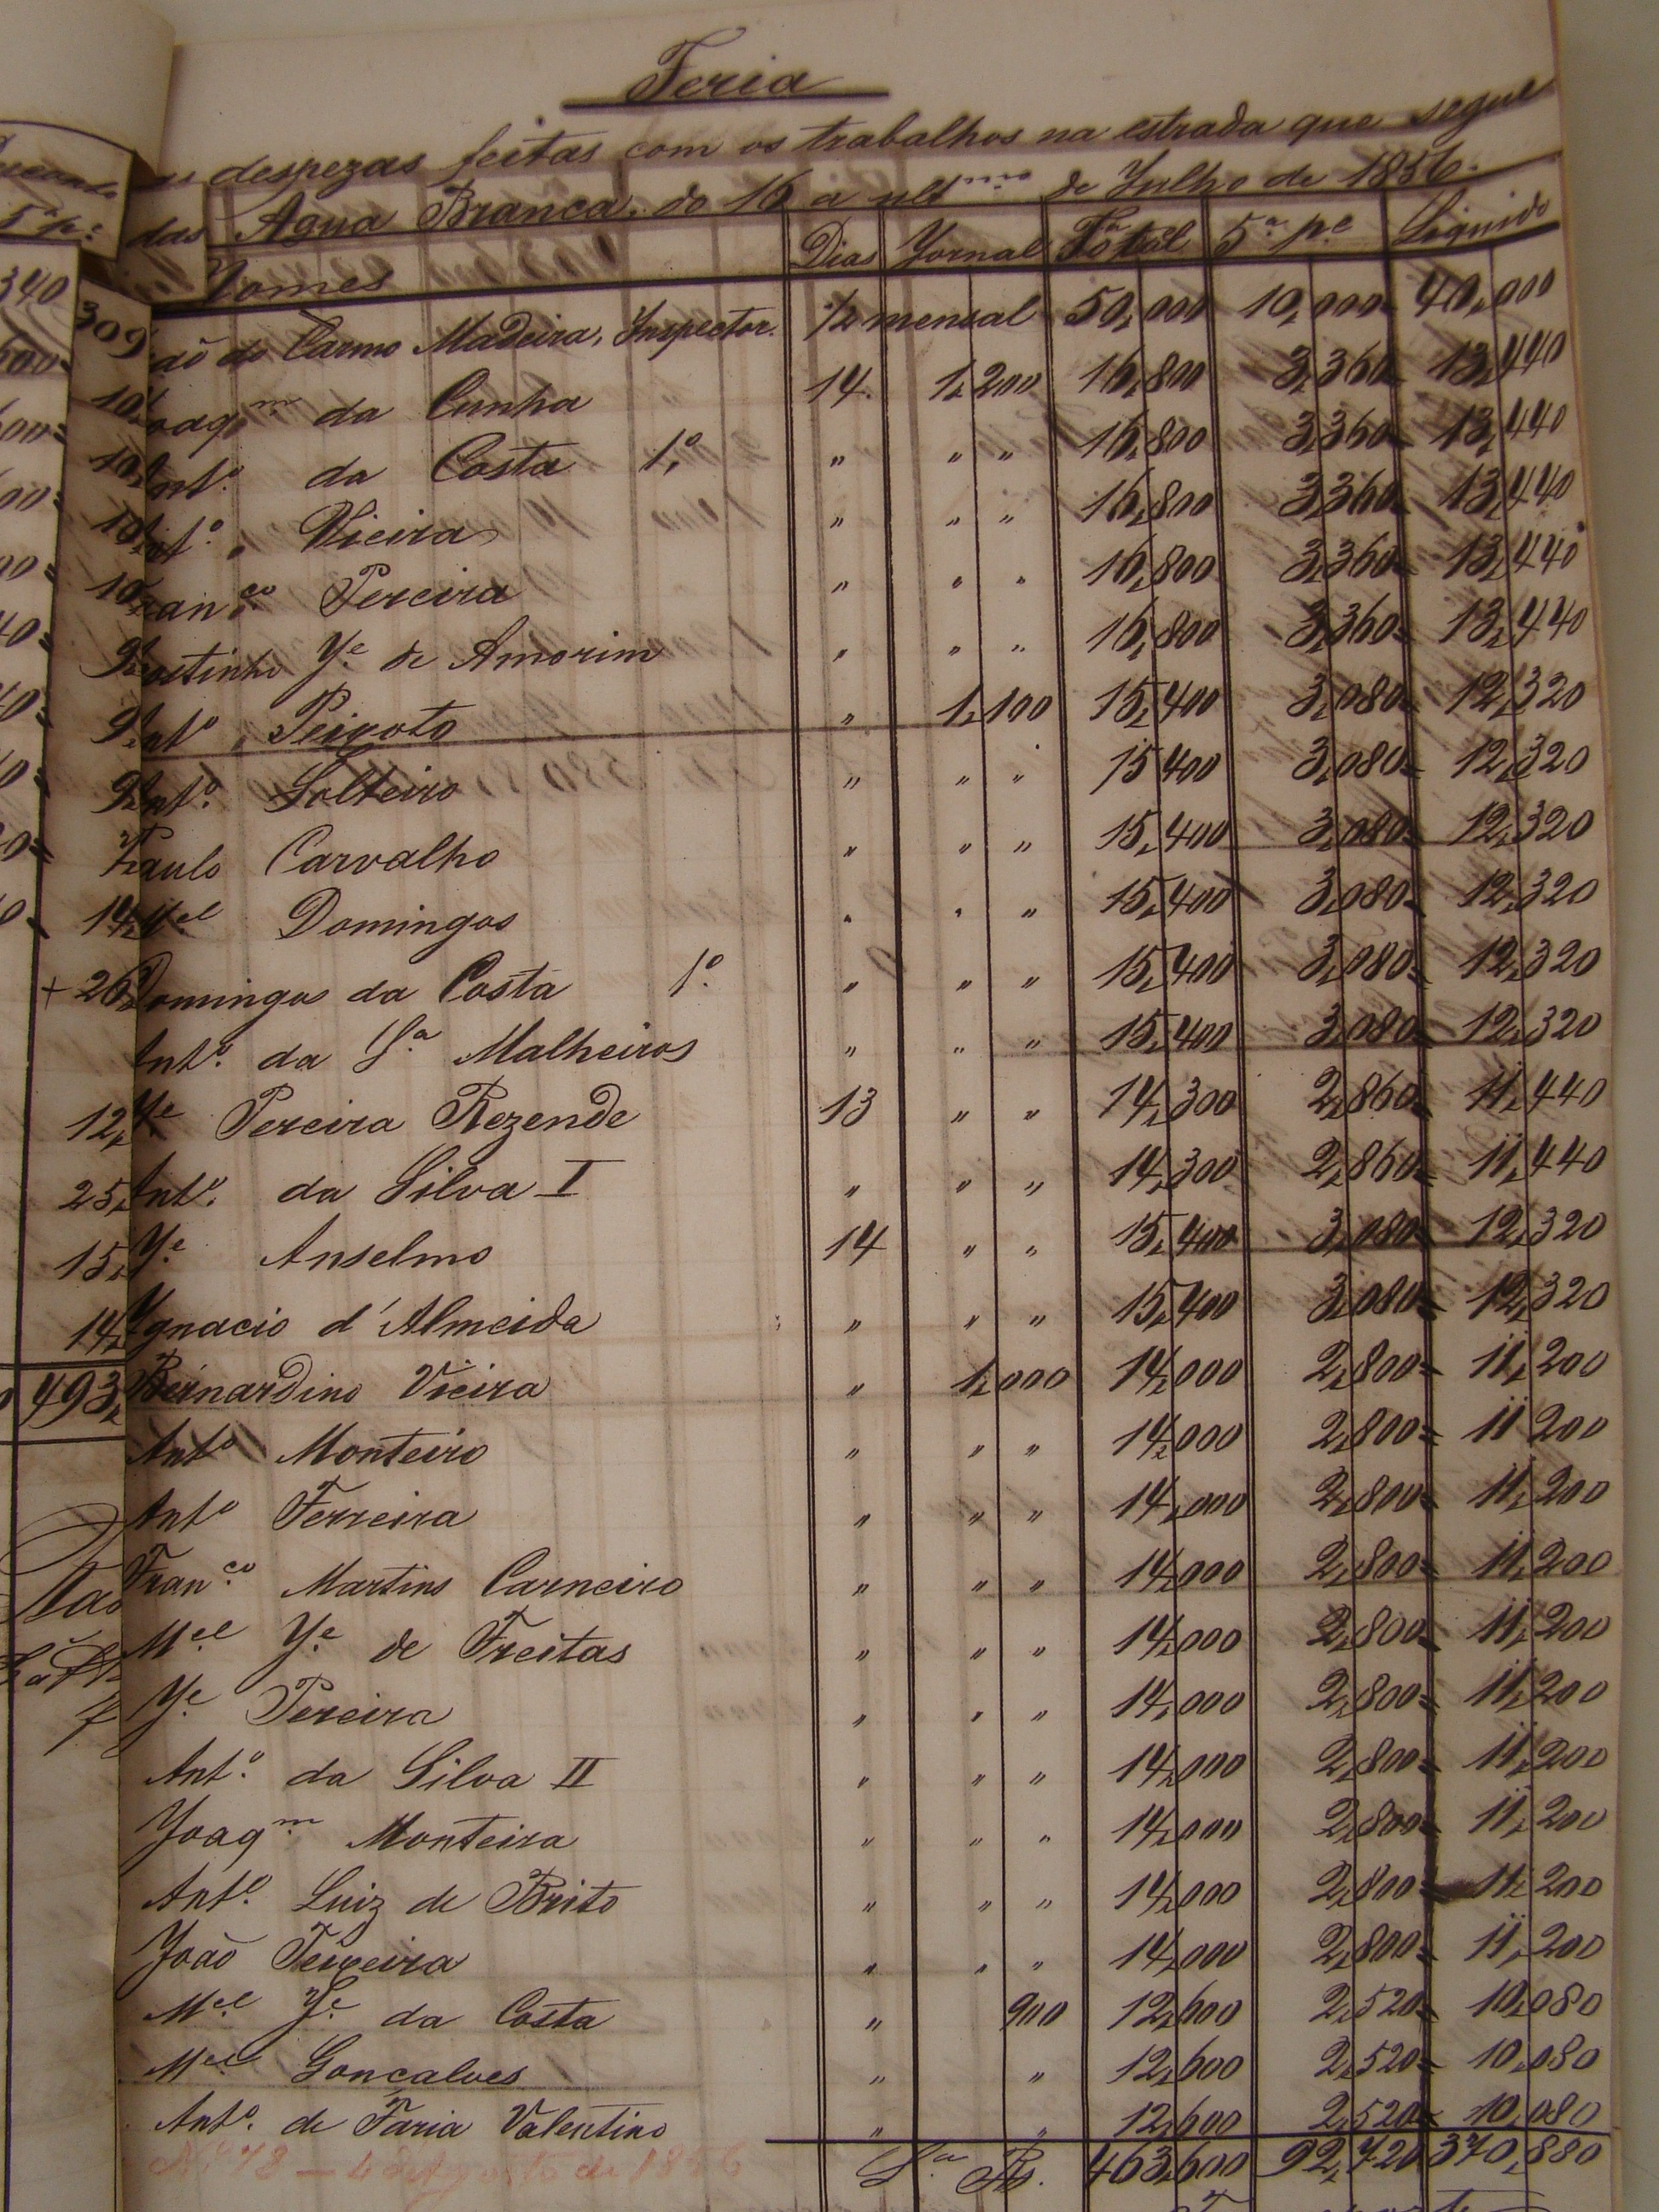 Feria
despezas feitas com os trabalhos na estrada que segue
das Agua Branca, do 16 a ult.imo de Julho de 1856.
Nomes Dias Jornal Total 5.a p.e Liquido
ão do Carmo Madeira, Inspector. 1/2 mensal 50,000 10,000 40,000
oaq.m da Cunha 14 1,200 16,800 3,360 13,440
nt.o da Costa 1.o " " " 16,800 3,360 13,440
nt.o Vieira " " " 16,800 3,360 13,440
ran.co Pereira " " " 16,800 3,360 13,440
ostinho J.e de Amorim " " " 16,800 3,360 13,440
nt.o Peixoto " 1,100 15,400 3,080 12,320
Ant.o Solteiro " " " 15,400 3,080 12,320
Paulo Carvalho " " " 15,400 3,080 12,320
M.el Domingos " " " 15,400 3,080 12,320
Domingos da Costa 1.o " " " 15,400 3,080 12,320
Ant.o da S.a Malheiros " " " 15,400 3,080 12,320
J.e Pereira Rezende 13 " " 14,300 2,860 11,440
Ant.o da Silva I " " " 14,300 2,860 11,440
J.e Anselmo 14 " " 15,400 3,080 12,320
Ignacio d'Almeida " " " 15,400 3,080 12,320
Bernardino Vieira " 1,000 14,000 2,800 11,200
Ant.o Monteiro " " " 14,000 2,800 11,200
Ant.o Ferreira " " " 14,000 2,800 11,200
Fran.co Martins Carneiro " " " 14,000 2,800 11,200
M.el J.e de Freitas " " " 14,000 2,800 11,200
J.e Pereira " " " 14,000 2,800 11,200
Ant.o da Silva II " " " 14,000 2,800 11,200
Joaq.m Monteira " " " 14,000 2,800 11,200
Ant.o Luiz de Brito " " " 14,000 2,800 11,200
João Teixeira " " " 14,000 2,800 11,200
M.el J.e da Costa " 900 12,600 2,520 10,080
M.el Goncalves " " 12,600 2,520 10,080
Ant.o de Faria Valentino " " 12,600 2,520 10,080
S.a Rs. 463,600 92,720 370,880
N.o 78 - 4 de Agosto de 1856